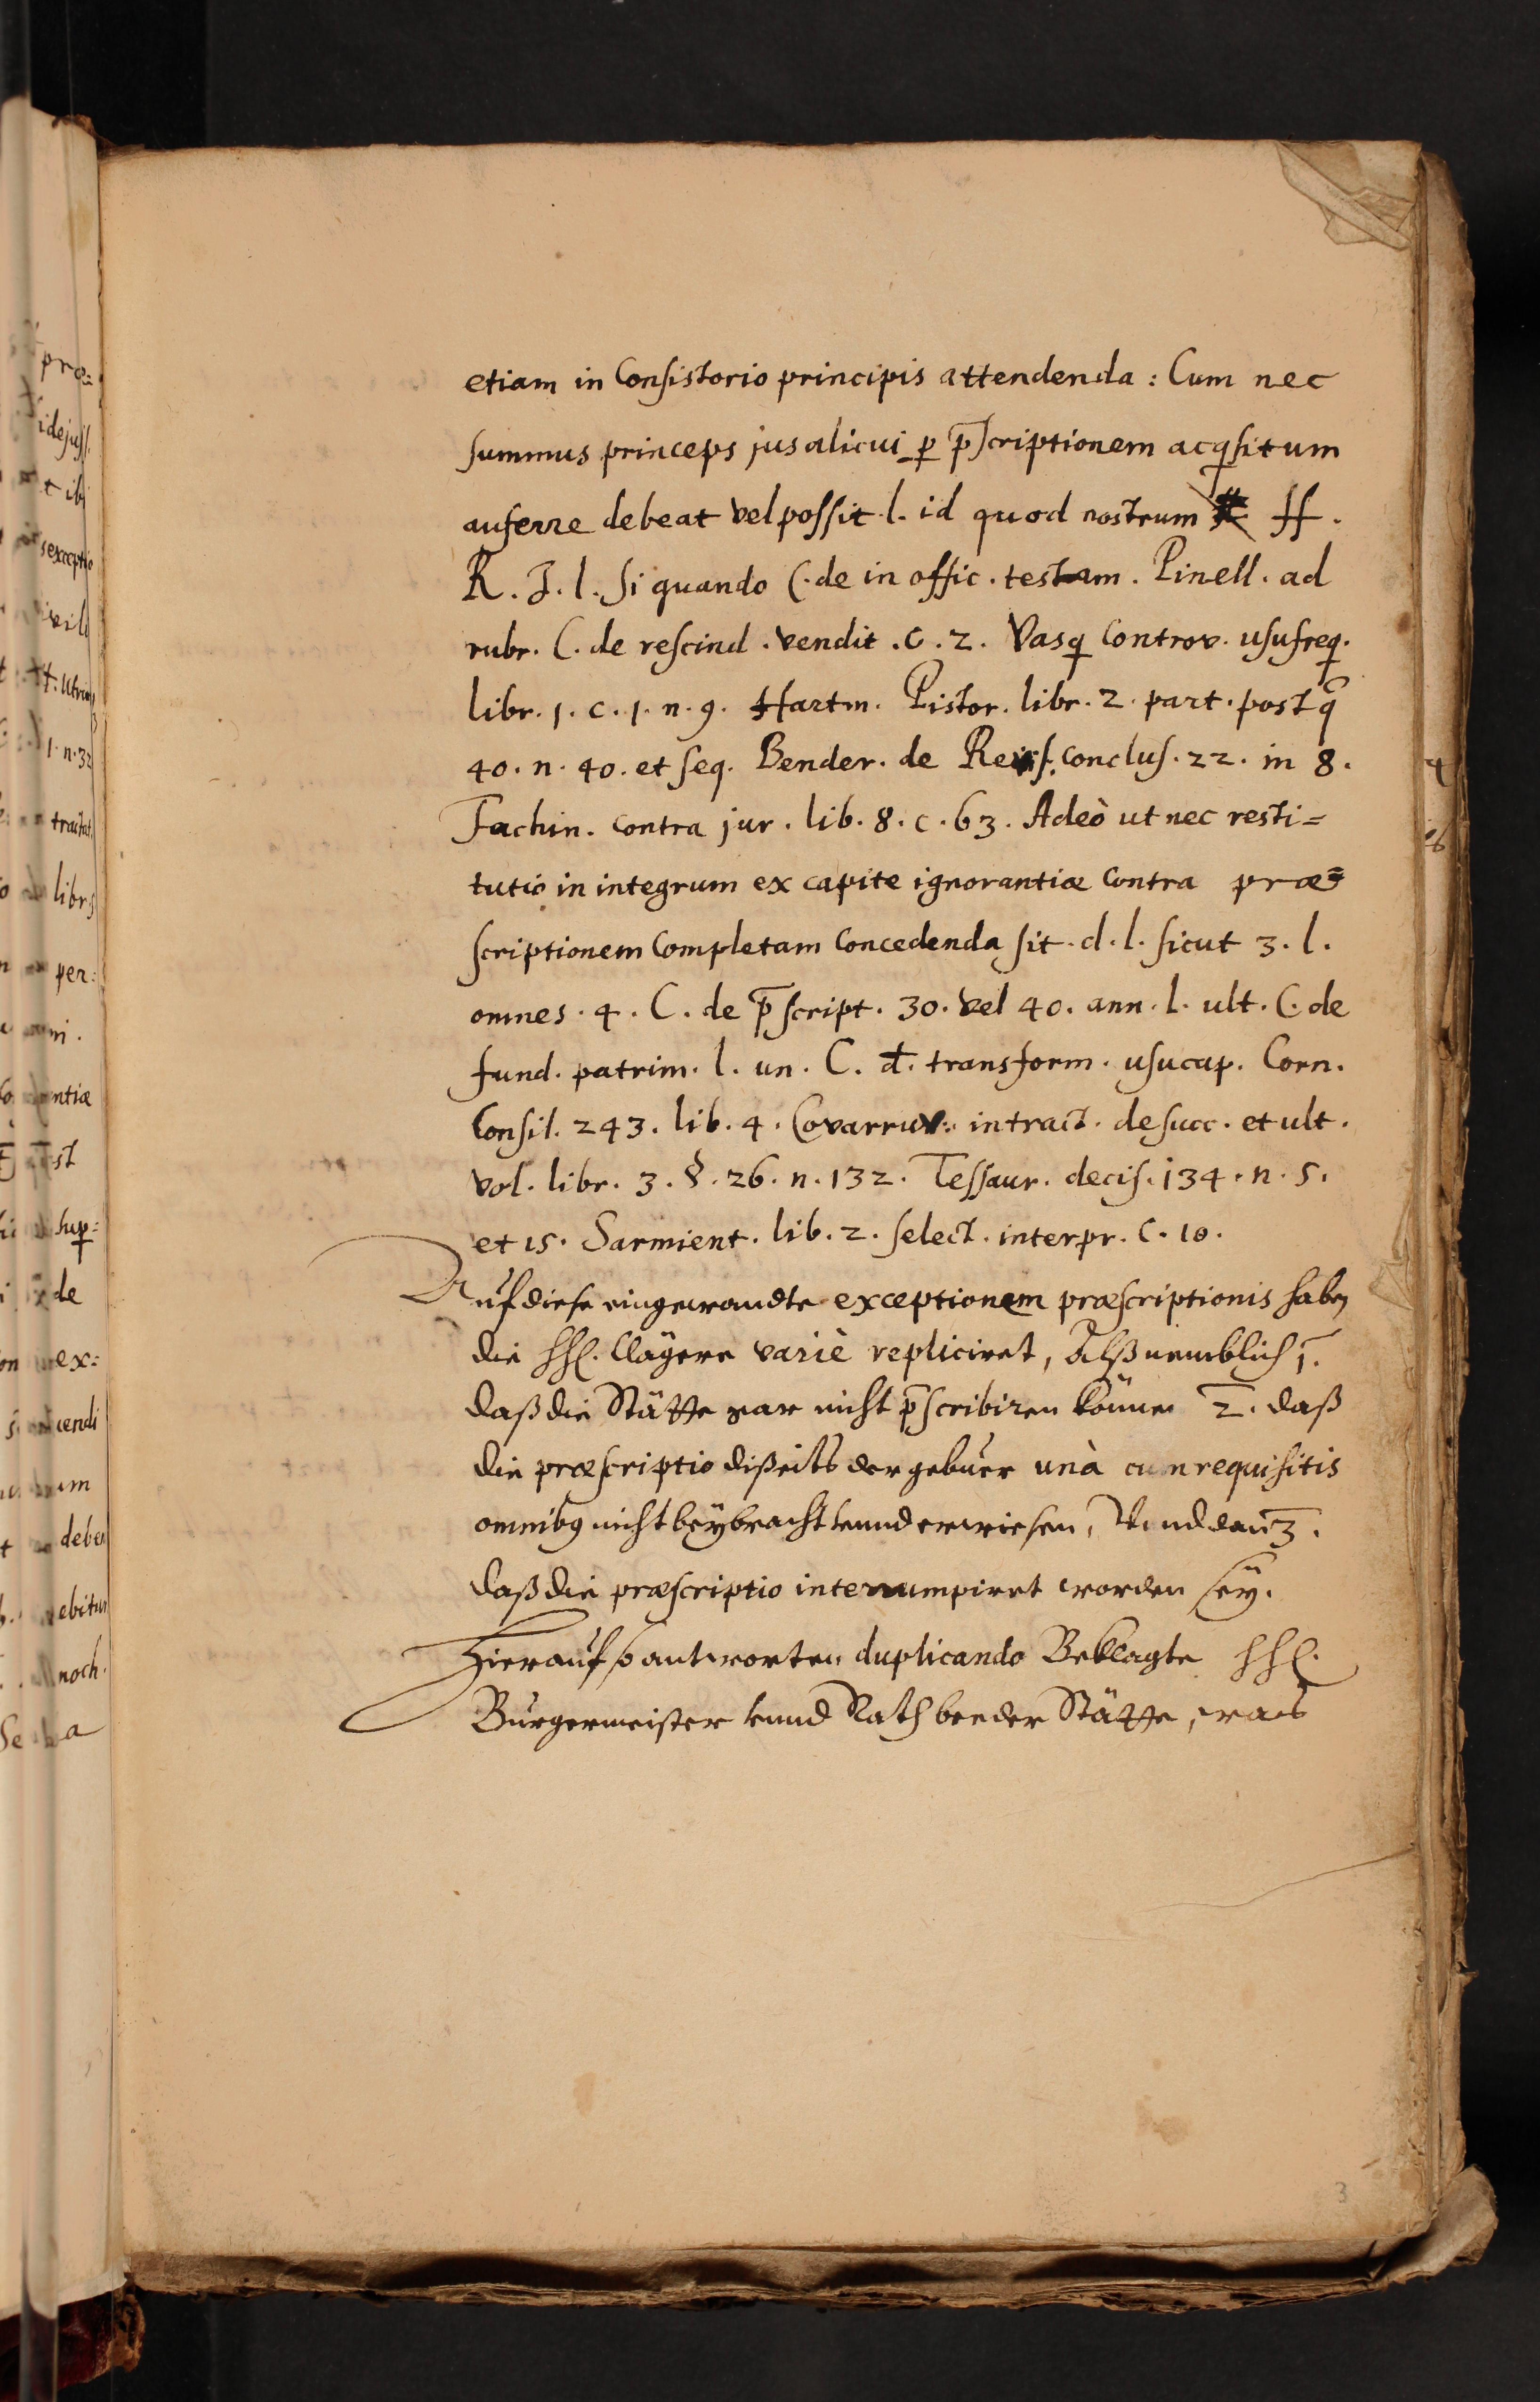 etiam in Consistorio principis attendenda: Cum nec
summus princeps jus alicui ꝑ p̄scriptionem acqsitum
auferre debeat vel possit. l. id quod nostrum ff.
R. J. l. Si quando C. de in offic. testam. Pinell. ad
rubr. C. de rescind. vendit. c. 2. Vasq Controv. usufreq.
libr. 1. c. 1. n. 9. Hartm. Pistor. libr. 2. part. post q̄
40. n. 40. et seq. Bender. de Revis. conclus. 22. in 8.
Fachin. Contra jur. lib. 8. c. 63. Adeò ut nec resti=
tutio in integrum ex capite ignorantiæ Contra præ=
scriptionem Completam Concedenda sit. d. l. sicut 3. l.
omnes. 4. C. de p̄script. 30. vel 40. ann. l. ult. C. de
fund. patrim. l. un. C. d. transform. usucap. Corn.
Consil. 243. lib. 4. Covarruv: in tract. de succ. et ult.
vol. libr. 3. §. 26. n. 132. Tessaur. decis. 134. n. 5.
et 15. Sarmient. lib. 2. select. interpr. C. 10.
Auf diese eingewandte exceptionem præscriptionis haben
die HH. Clägere variè repliciret, Alß nemblich 1.
daß die Stätte gar nicht p̄scribiren können 2. daß
die præscriptio dißeits der gebuer unà cum requisitis
omnibꝫ nicht beÿbracht unnd erwiesen, Unnd dan 3.
daß die præscriptio interrumpiret worden seÿ.
Hierauf so antworten duplicando Beklagte HH.
Burgermeister unnd Rath beeder Stätte, was
3